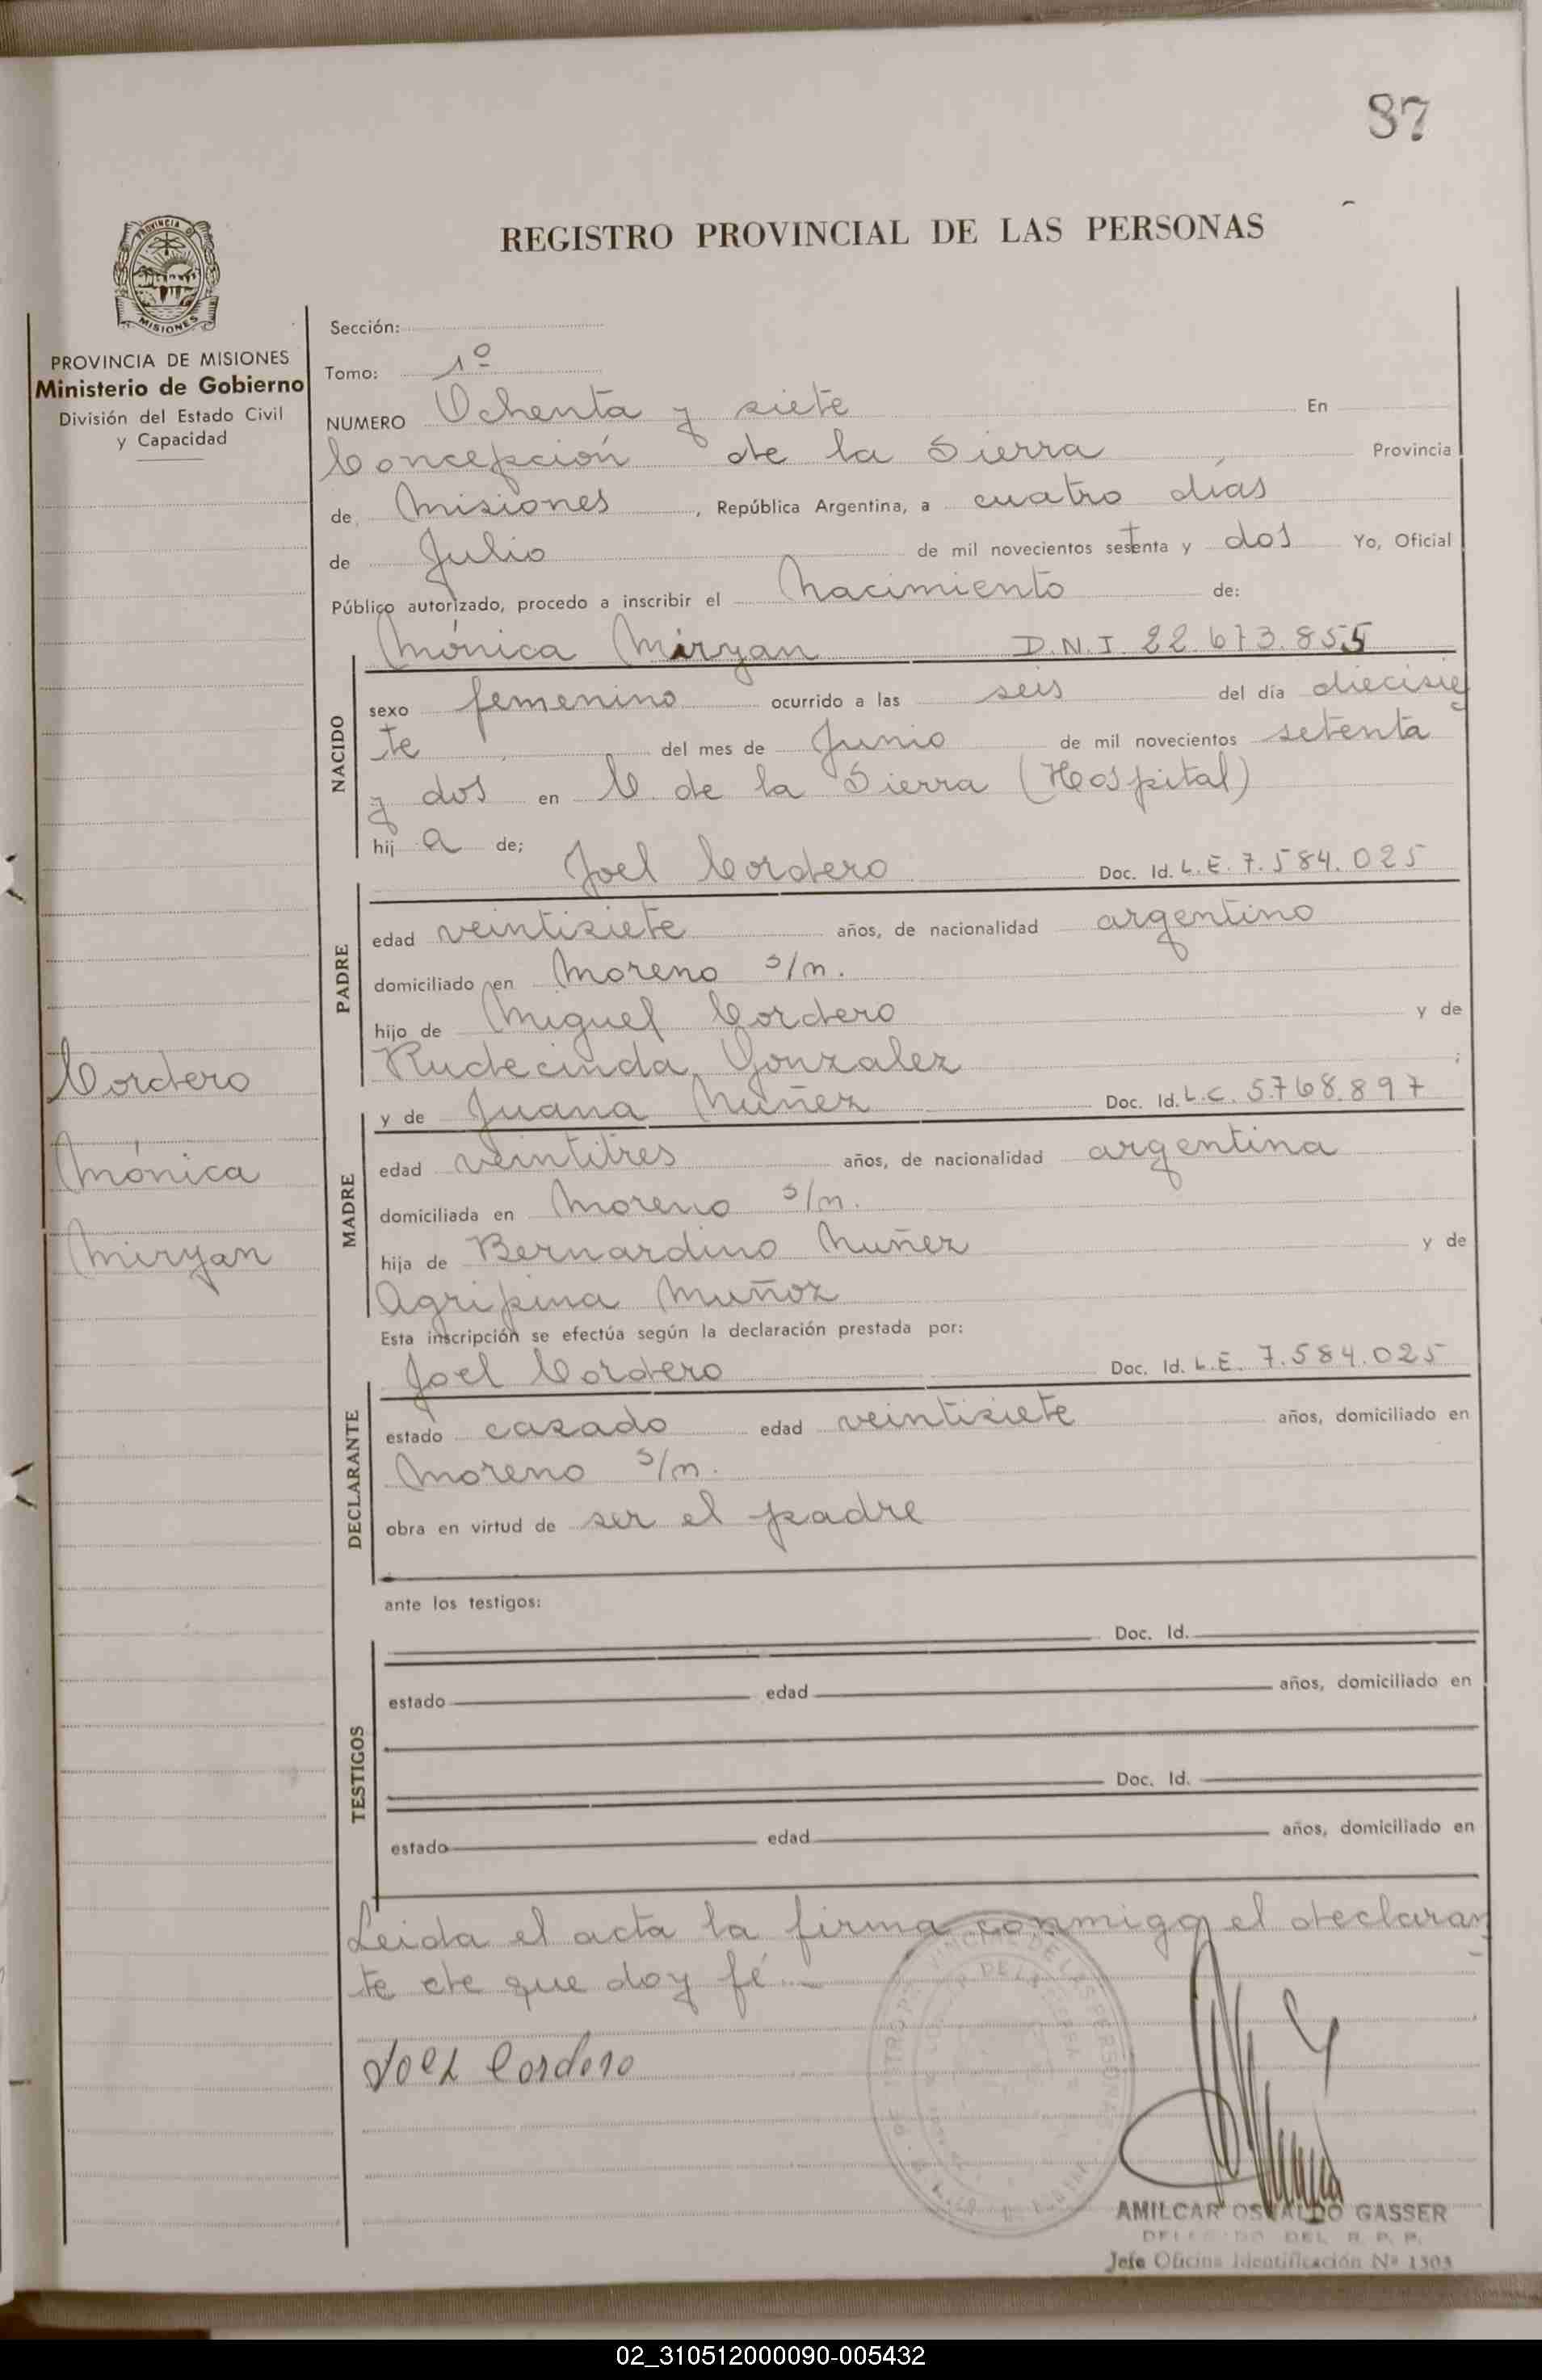 87
REGISTRO PROVINCIAL DE LAS PERSONAS
PROVINCIA DE
MISIONES
PROVINCIA DE MISIONES
Ministerio de Gobierno
División del Estado Civil
y Capacidad
Cordero
Mónica
Miryan
Sección:
Tomo: 1º
NUMERO Ochenta y siete En
Concepción de la Sierra Provincia
de Misiones, República Argentina, a cuatro días
de Julio de mil novecientos setenta y dos Yo, Oficial
Público autorizado, procedo a inscribir el Nacimiento de:
Mónica Miryan D.N.I. 22.673.855
NACIDO
sexo femenino ocurrido a las seis del día diecisie
te del mes de Junio de mil novecientos setenta
y dos en C. de la Sierra (Hospital)
hij a de;
Joel Cordero Doc. Id. L.E. 7.584.025
PADRE
edad veintisiete años, de nacionalidad argentino
domiciliado en Moreno s/n.
hijo de Miguel Cordero y de
Rudecinda Gonzalez ;
y de Juana Nuñez Doc. Id. L.C. 5.768.897
MADRE
edad veintitres años, de nacionalidad argentina
domiciliada en Moreno s/n.
hija de Bernardino Nuñez y de
Agripina Muñoz
Esta inscripción se efectúa según la declaración prestada por:
Joel Cordero Doc. Id. L.E. 7.584.025
DECLARANTE
estado casado edad veintisiete años, domiciliado en
Moreno s/n.
obra en virtud de ser el padre
ante los testigos:
TESTIGOS
Doc. Id.
estado edad años, domiciliado en
Doc. Id.
estado edad años, domiciliado en
Leida el acta la firma conmigo el declaran
te de que doy fé.-
Joel Cordero
AMILCAR OSVALDO GASSER
DELEGADO DEL R. P. P.
Jefe Oficina Identificación Nº 1303
02_310512000090-005432